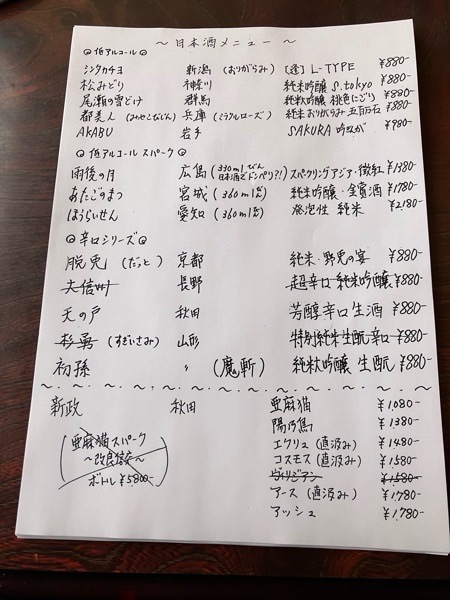 ～日本酒メニュー～
◎低アルコール◎
シンタカチヨ 新潟(おりがらみ) [逢] L-TYPE ¥880-
松みどり 神奈川 純米吟醸 S.tokyo ¥880-
尾瀬の雪どけ 群馬 純米吟醸 桃色にごり ¥880-
都美人(みやこびじん) 兵庫(ミラクルローズ) 純米おりがらみ 五百万石 ¥880-
AKABU 岩手 SAKURA 吟ぎんが ¥980-
◎低アルコール スパーク◎
雨後の月 広島(330mlびん 日本酒でドンペリ?!) スパークリングアジア・微紅 ¥1380-
あたごのまつ 宮城(360ml) 純米吟醸・金賞酒 ¥1780-
ほうらいせん 愛知(360ml) 発泡性 純米 ¥2,180-
◎辛口シリーズ◎
脱兎(だっと) 京都 純米・野兎の宴 ¥880-
夫信州 長野 超辛口 純米吟醸 ¥880-
天の戸 秋田 芳醇辛口生酒 ¥880-
杉勇(すぎいさみ) 山形 特別純米生酛辛口 ¥880-
初孫 〃 (魔斬) 純米吟醸 生酛 ¥880-
新政 秋田 亜麻猫 ¥1080-
陽乃鳥 ¥1380-
エクリュ(直汲み) ¥1480-
コスモス(直汲み) ¥1580-
ヴィリジアン ¥1580-
アース(直汲み) ¥1,780-
アッシュ ¥1,780-
亜麻猫スパーク
～改良信交～
ボトル ¥5800-